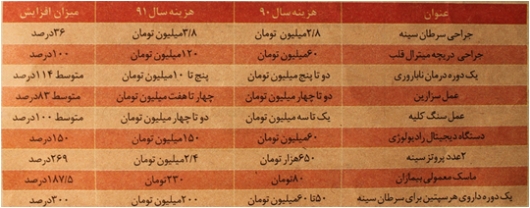 عنوان هزینه سال ۹۰ هزینه سال ۹۱ میزان افزایش
جراحی سرطان سینه ۲/۸میلیون تومان ۳/۸میلیون تومان ۳۶درصد
جراحی دریچه میترال قلب ۶۰میلیون تومان ۱۲۰میلیون تومان ۱۰۰درصد
یک دوره درمان ناباروری دو تا پنج میلیون تومان پنج تا ۱۰میلیون تومان متوسط ۱۱۴درصد
عمل سزارین دو تا چهار میلیون تومان چهار تا هفت میلیون تومان متوسط ۸۳درصد
عمل سنگ کلیه یک تا سه میلیون تومان دو تا چهار میلیون تومان متوسط ۱۰۰درصد
دستگاه دیجیتال رادیولوژی ۶۰میلیون تومان ۱۵۰میلیون تومان ۱۵۰درصد
۲عدد پروتز سینه ۶۵۰هزار تومان ۲/۴میلیون تومان ۲۶۹درصد
ماسک معمولی بیماران ۸۰تومان ۲۳۰تومان ۱۸۷/۵درصد
یک دوره داروی هرسپتین برای سرطان سینه ۵۰تا ۶۰میلیون تومان ۲۰۰میلیون تومان ۳۰۰درصد